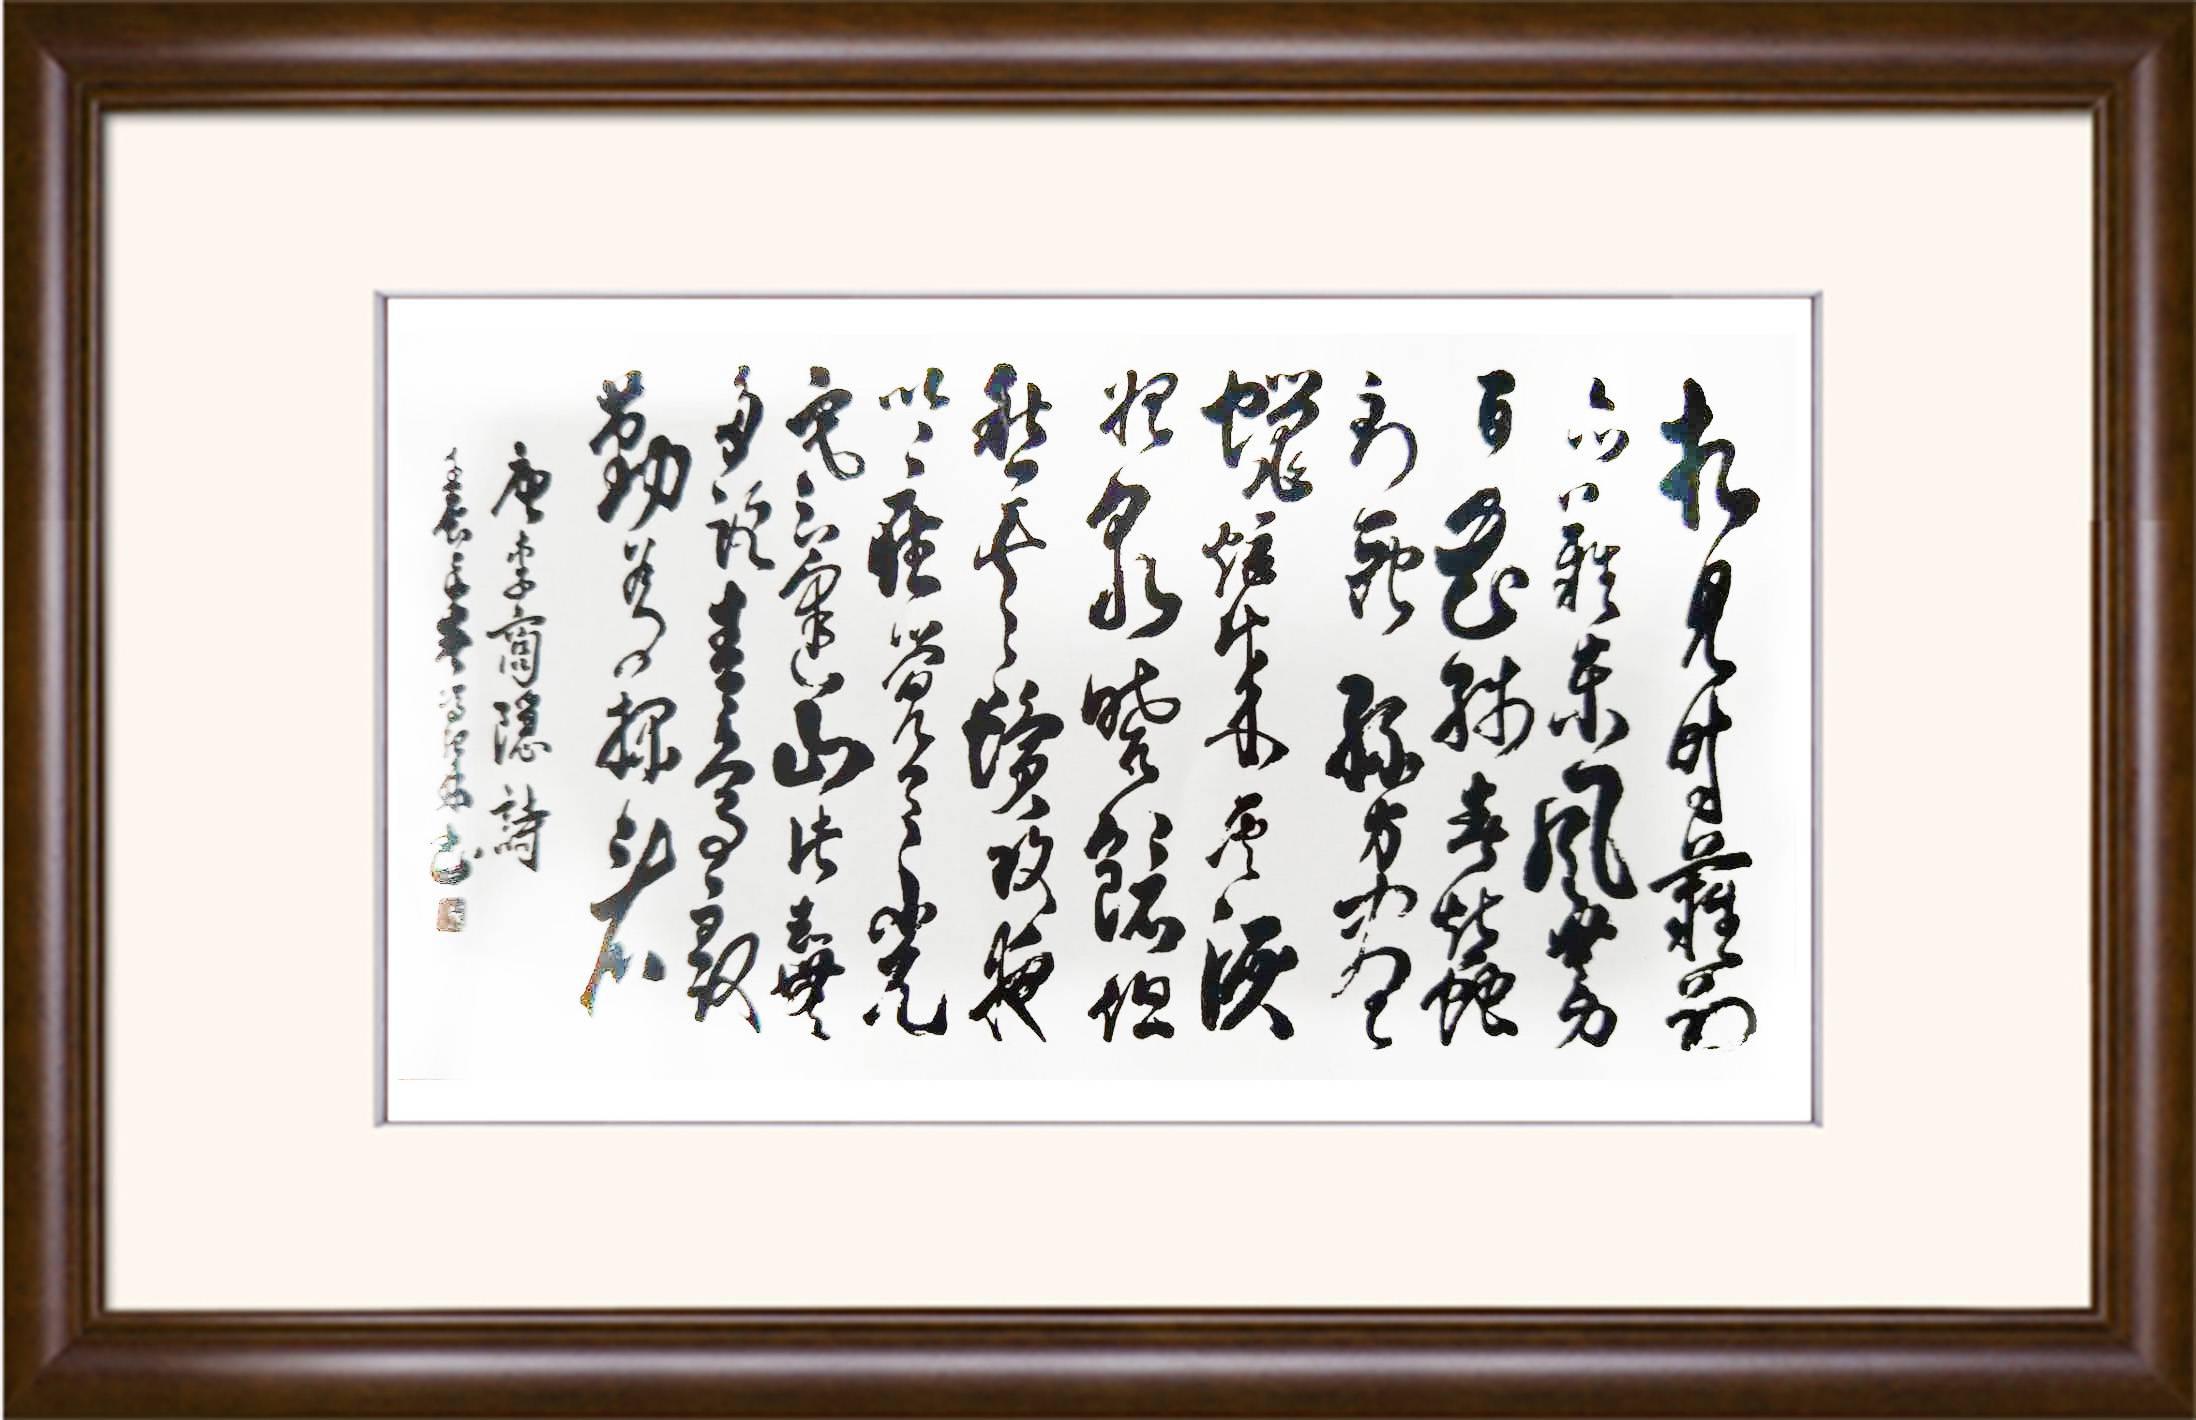 相見時難別
亦難東風無力
百花殘春蠶
到死絲方盡
蠟炬成灰淚
始乾曉鏡但
愁雲鬢改夜
吟應覺月光
寒蓬山此去無
多路青鳥殷
勤為探看
唐李商隱詩
壬辰年春 書